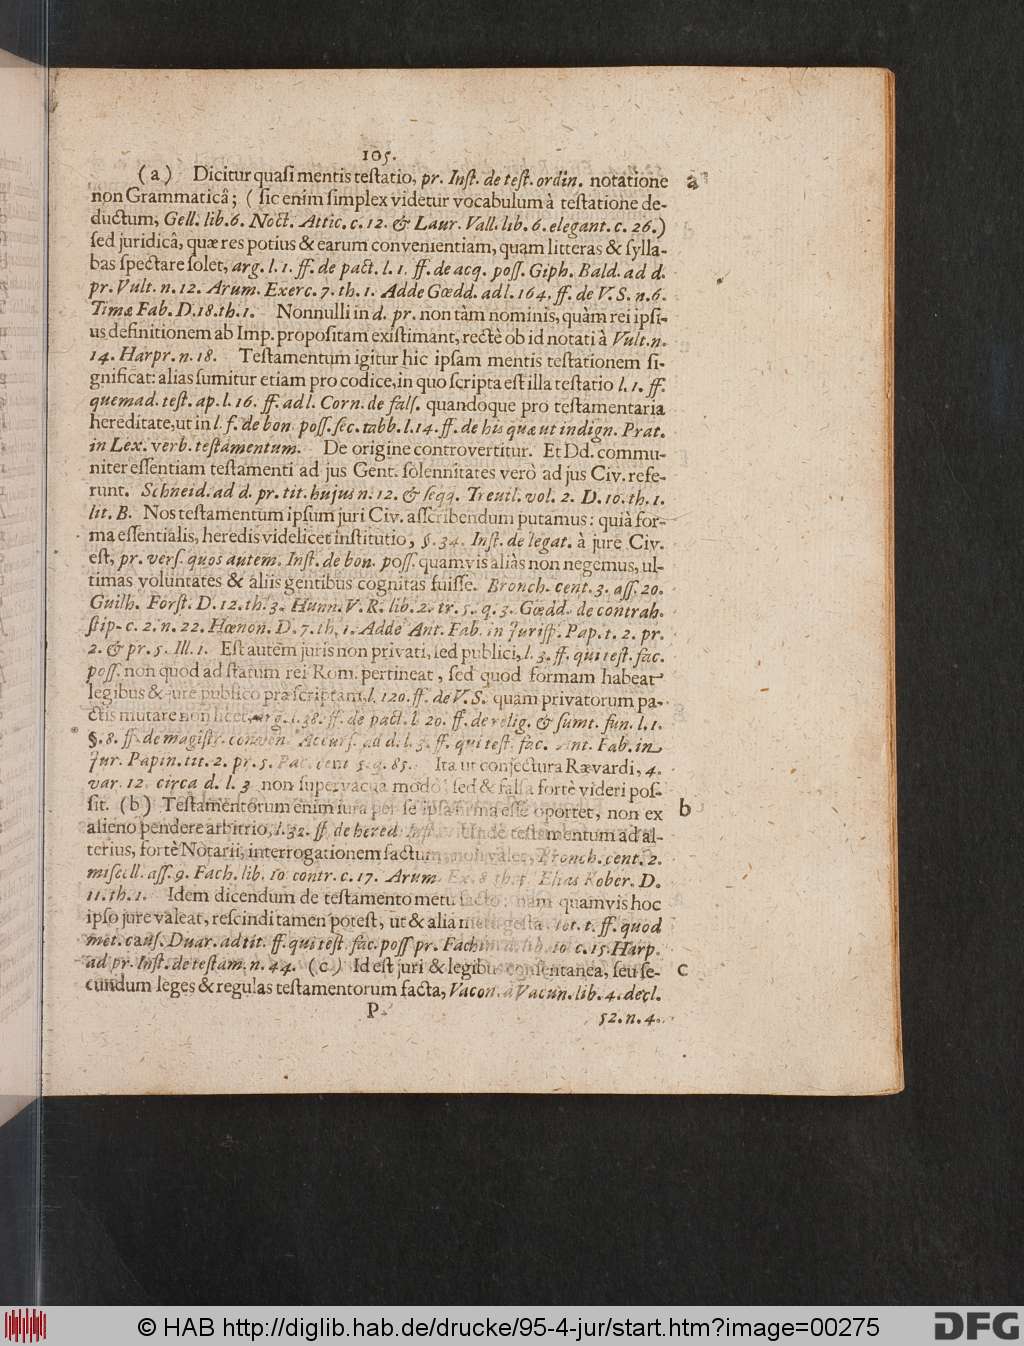 105.
(a) Dicitur quasi mentis testatio, pr. Inst. de test. ordin. notatione a
non Grammaticâ; (sic enim simplex videtur vocabulum à testatione de-
ductum, Gell. lib. 6. Noct. Attic. c. 12. & Laur. Vall. lib. 6. elegant. c. 26.)
sed juridicâ, quæ res potius & earum convenientiam, quam litteras & sylla-
bas spectare solet, arg. l. 1. ff. de pact. l. 1. ff. de acq. poss. Giph. Bald. ad d.
pr. Vult. n. 12. Arum. Exerc. 7. th. 1. Adde Gœdd. ad l. 164. ff. de V. S. n. 6.
Timæ Fab. D. 18. th. 1. Nonnulli in d. pr. non tàm nominis, quàm rei ipsi-
us definitionem ab Imp. propositam existimant, rectè ob id notati à Vult. n.
14. Harpr. n. 18. Testamentum igitur hic ipsam mentis testationem si-
gnificat: alias sumitur etiam pro codice, in quo scripta est illa testatio l. 1. ff.
quemad. test. ap. l. 16. ff. ad l. Corn. de fals. quandoque pro testamentaria
hereditate, ut in l. f. de bon. poss. sec. tabb. l. 14. ff. de his quæ ut indign. Prat.
in Lex. verb. testamentum. De origine controvertitur. Et Dd. commu-
niter essentiam testamenti ad jus Gent. solennitates verò ad jus Civ. refe-
runt. Schneid. ad d. pr. tit. hujus n. 12. & seqq. Treutl. vol. 2. D. 10. th. 1.
lit. B. Nos testamentum ipsum juri Civ. asscribendum putamus: quià for-
ma essentialis, heredis videlicet institutio, §. 34. Inst. de legat. à jure Civ.
est, pr. vers. quos autem. Inst. de bon. poss. quamvis aliàs non negemus, ul-
timas voluntates & aliis gentibus cognitas fuisse. Bronch. cent. 3. ass. 20.
Guilh. Forst. D. 12. th. 3. Hunn. V. R. lib. 2. tr. 5. q. 3. Gœdd. de contrah.
stip. c. 2. n. 22. Hœnon. D. 7. th. 1. Adde Ant. Fab. in Jurisp. Pap. t. 2. pr.
2. & pr. 5. Ill. 1. Est autem juris non privati, sed publici, l. 3. ff. qui test. fac.
poss. non quod ad statum rei Rom. pertineat, sed quod formam habeat
legibus & jure publico præscriptam, l. 120. ff. de V. S. quam privatorum pa-
ctis mutare non licet, arg. l. 38. ff. de pact. l. 20. ff. de relig. & sumt. fun. l. 1.
§. 8. ff. de magistr. conven. Accurs. ad d. l. 3. ff. qui test. fac. Ant. Fab. in
Jur. Papin. tit. 2. pr. 5. Pac. cent. 5. q. 85. Ita ut conjectura Rævardi, 4.
var. 12. circa d. l. 3. non supervacua modò sed & falsa fortè videri pos-
sit. (b) Testamentorum enim jura per se ipsa firma esse oportet, non ex b
alieno pendere arbitrio, l. 32. ff. de hered. Inst. Unde testamentum ad al-
terius, fortè Notarii, interrogationem factum, non valet, Bronch. cent. 2.
miscell. ass. 9. Fach. lib. 10. contr. c. 17. Arum. Ex. 8. th. 5. Elias Rober. D.
11. th. 1. Idem dicendum de testamento metu facto: nam quamvis hoc
ipso jure valeat, rescindi tamen potest, ut & alia metu gesta. tot. t. ff. quod
met. caus. Duar. ad tit. ff. qui test. fac. poss. pr. Fachin. d. lib. 10. c. 15. Harp.
ad pr. Inst. de testam. n. 44. (c) Id est juri & legibus consentanea, seu se- c
cundum leges & regulas testamentorum facta, Vacon. à Vacun. lib. 4. decl.
P 52. n. 4.
© HAB http://diglib.hab.de/drucke/95-4-jur/start.htm?image=00275
DFG